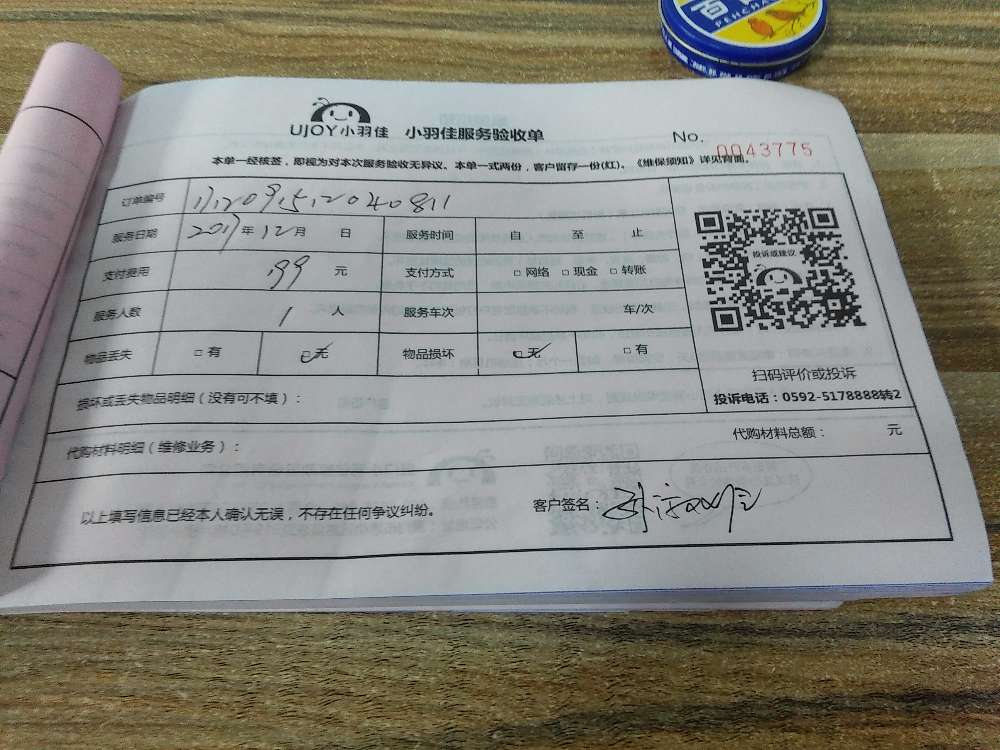 百
PEHCHA
UJOY小羽佳 小羽佳服务验收单
No. 0043775
本单一经核签，即视为对本次服务验收无异议。本单一式两份，客户留存一份(红)。《维保须知》详见背面。
订单编号
服务日期 2017年12月 日 服务时间 自 至 止
支付费用 199 元 支付方式 □网络 □现金 □转账
服务人数 1 人 服务车次 车/次
物品丢失 □有 □无 物品损坏 □无 □有
投诉或建议
扫码评价或投诉
投诉电话：0592-5178888转2
损坏或丢失物品明细（没有可不填）：
代购材料明细（维修业务）： 代购材料总额： 元
以上填写信息已经本人确认无误，不存在任何争议纠纷。 客户签名：